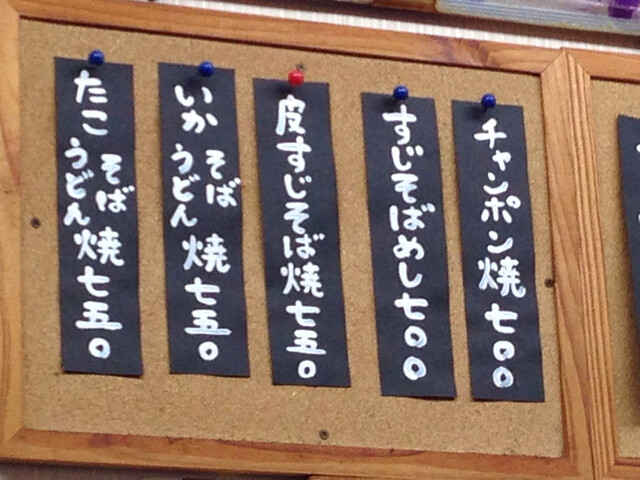 チャンポン焼 七〇〇
すじそばめし七〇〇
皮すじそば焼七五〇
いか そば うどん 焼 七五〇
たこ そば うどん 焼 七五〇